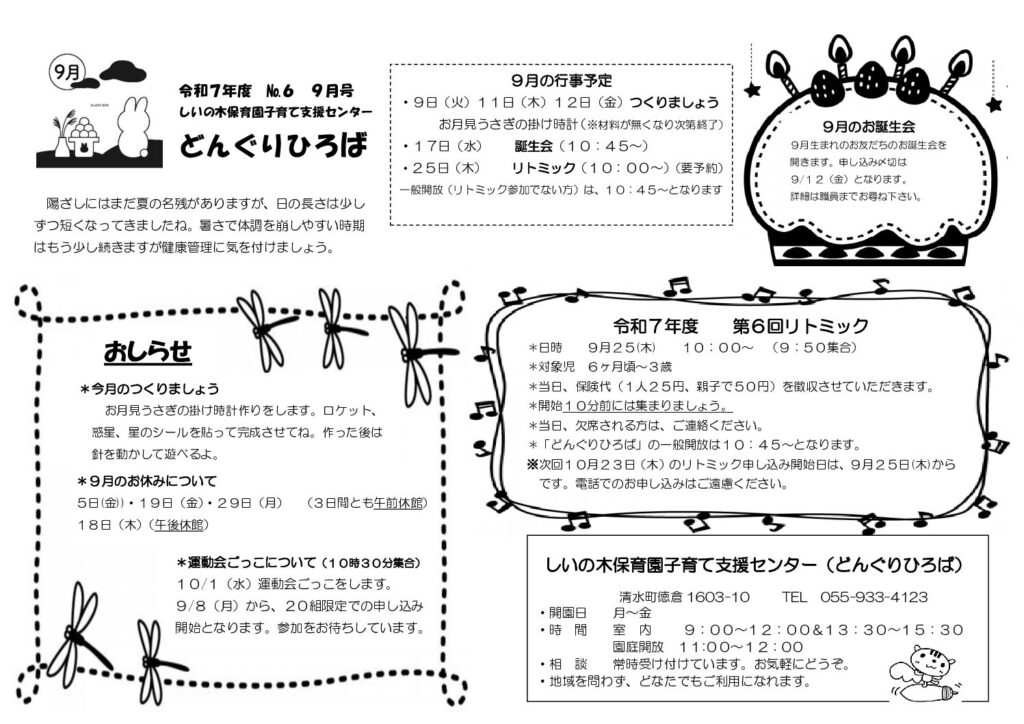 9月
令和7年度 No.6 9月号
しいの木保育園子育て支援センター
どんぐりひろば
陽ざしにはまだ夏の名残がありますが、日の長さは少し
ずつ短くなってきましたね。暑さで体調を崩しやすい時期
はもう少し続きますが健康管理に気を付けましょう。
9月の行事予定
・9日（火）11日（木）12日（金）つくりましょう
お月見うさぎの掛け時計（※材料が無くなり次第終了）
・17日（水） 誕生会（10：45～）
・25日（木） リトミック（10：00～）（要予約）
一般開放（リトミック参加でない方）は、10：45～となります
9月のお誕生会
9月生まれのお友だちのお誕生会を
開きます。申し込み〆切は
9/12（金）となります。
詳細は職員までお尋ね下さい。
おしらせ
＊今月のつくりましょう
お月見うさぎの掛け時計作りをします。ロケット、
惑星、星のシールを貼って完成させてね。作った後は
針を動かして遊べるよ。
＊9月のお休みについて
5日(金))・19日（金）・29日（月） （3日間とも午前休館）
18日（木）（午後休館）
＊運動会ごっこについて（10時30分集合）
10/1（水）運動会ごっこをします。
9/8（月）から、20組限定での申し込み
開始となります。参加をお待ちしています。
令和7年度 第6回リトミック
＊日時 9月25(木) 10：00～ （9：50集合）
＊対象児 6ヶ月頃～3歳
＊当日、保険代（1人25円、親子で50円）を徴収させていただきます。
＊開始10分前には集まりましょう。
＊当日、欠席される方は、ご連絡ください。
＊「どんぐりひろば」の一般開放は10：45～となります。
※次回10月23日（木）のリトミック申し込み開始日は、9月25日(木)から
です。電話でのお申し込みはご遠慮ください。
しいの木保育園子育て支援センター（どんぐりひろば）
清水町徳倉1603-10 TEL 055-933-4123
・開園日 月～金
・時 間 室 内 9：00～12：00&13：30～15：30
園庭開放 11:00～12：00
・相 談 常時受け付けています。お気軽にどうぞ。
・地域を問わず、どなたでもご利用になれます。